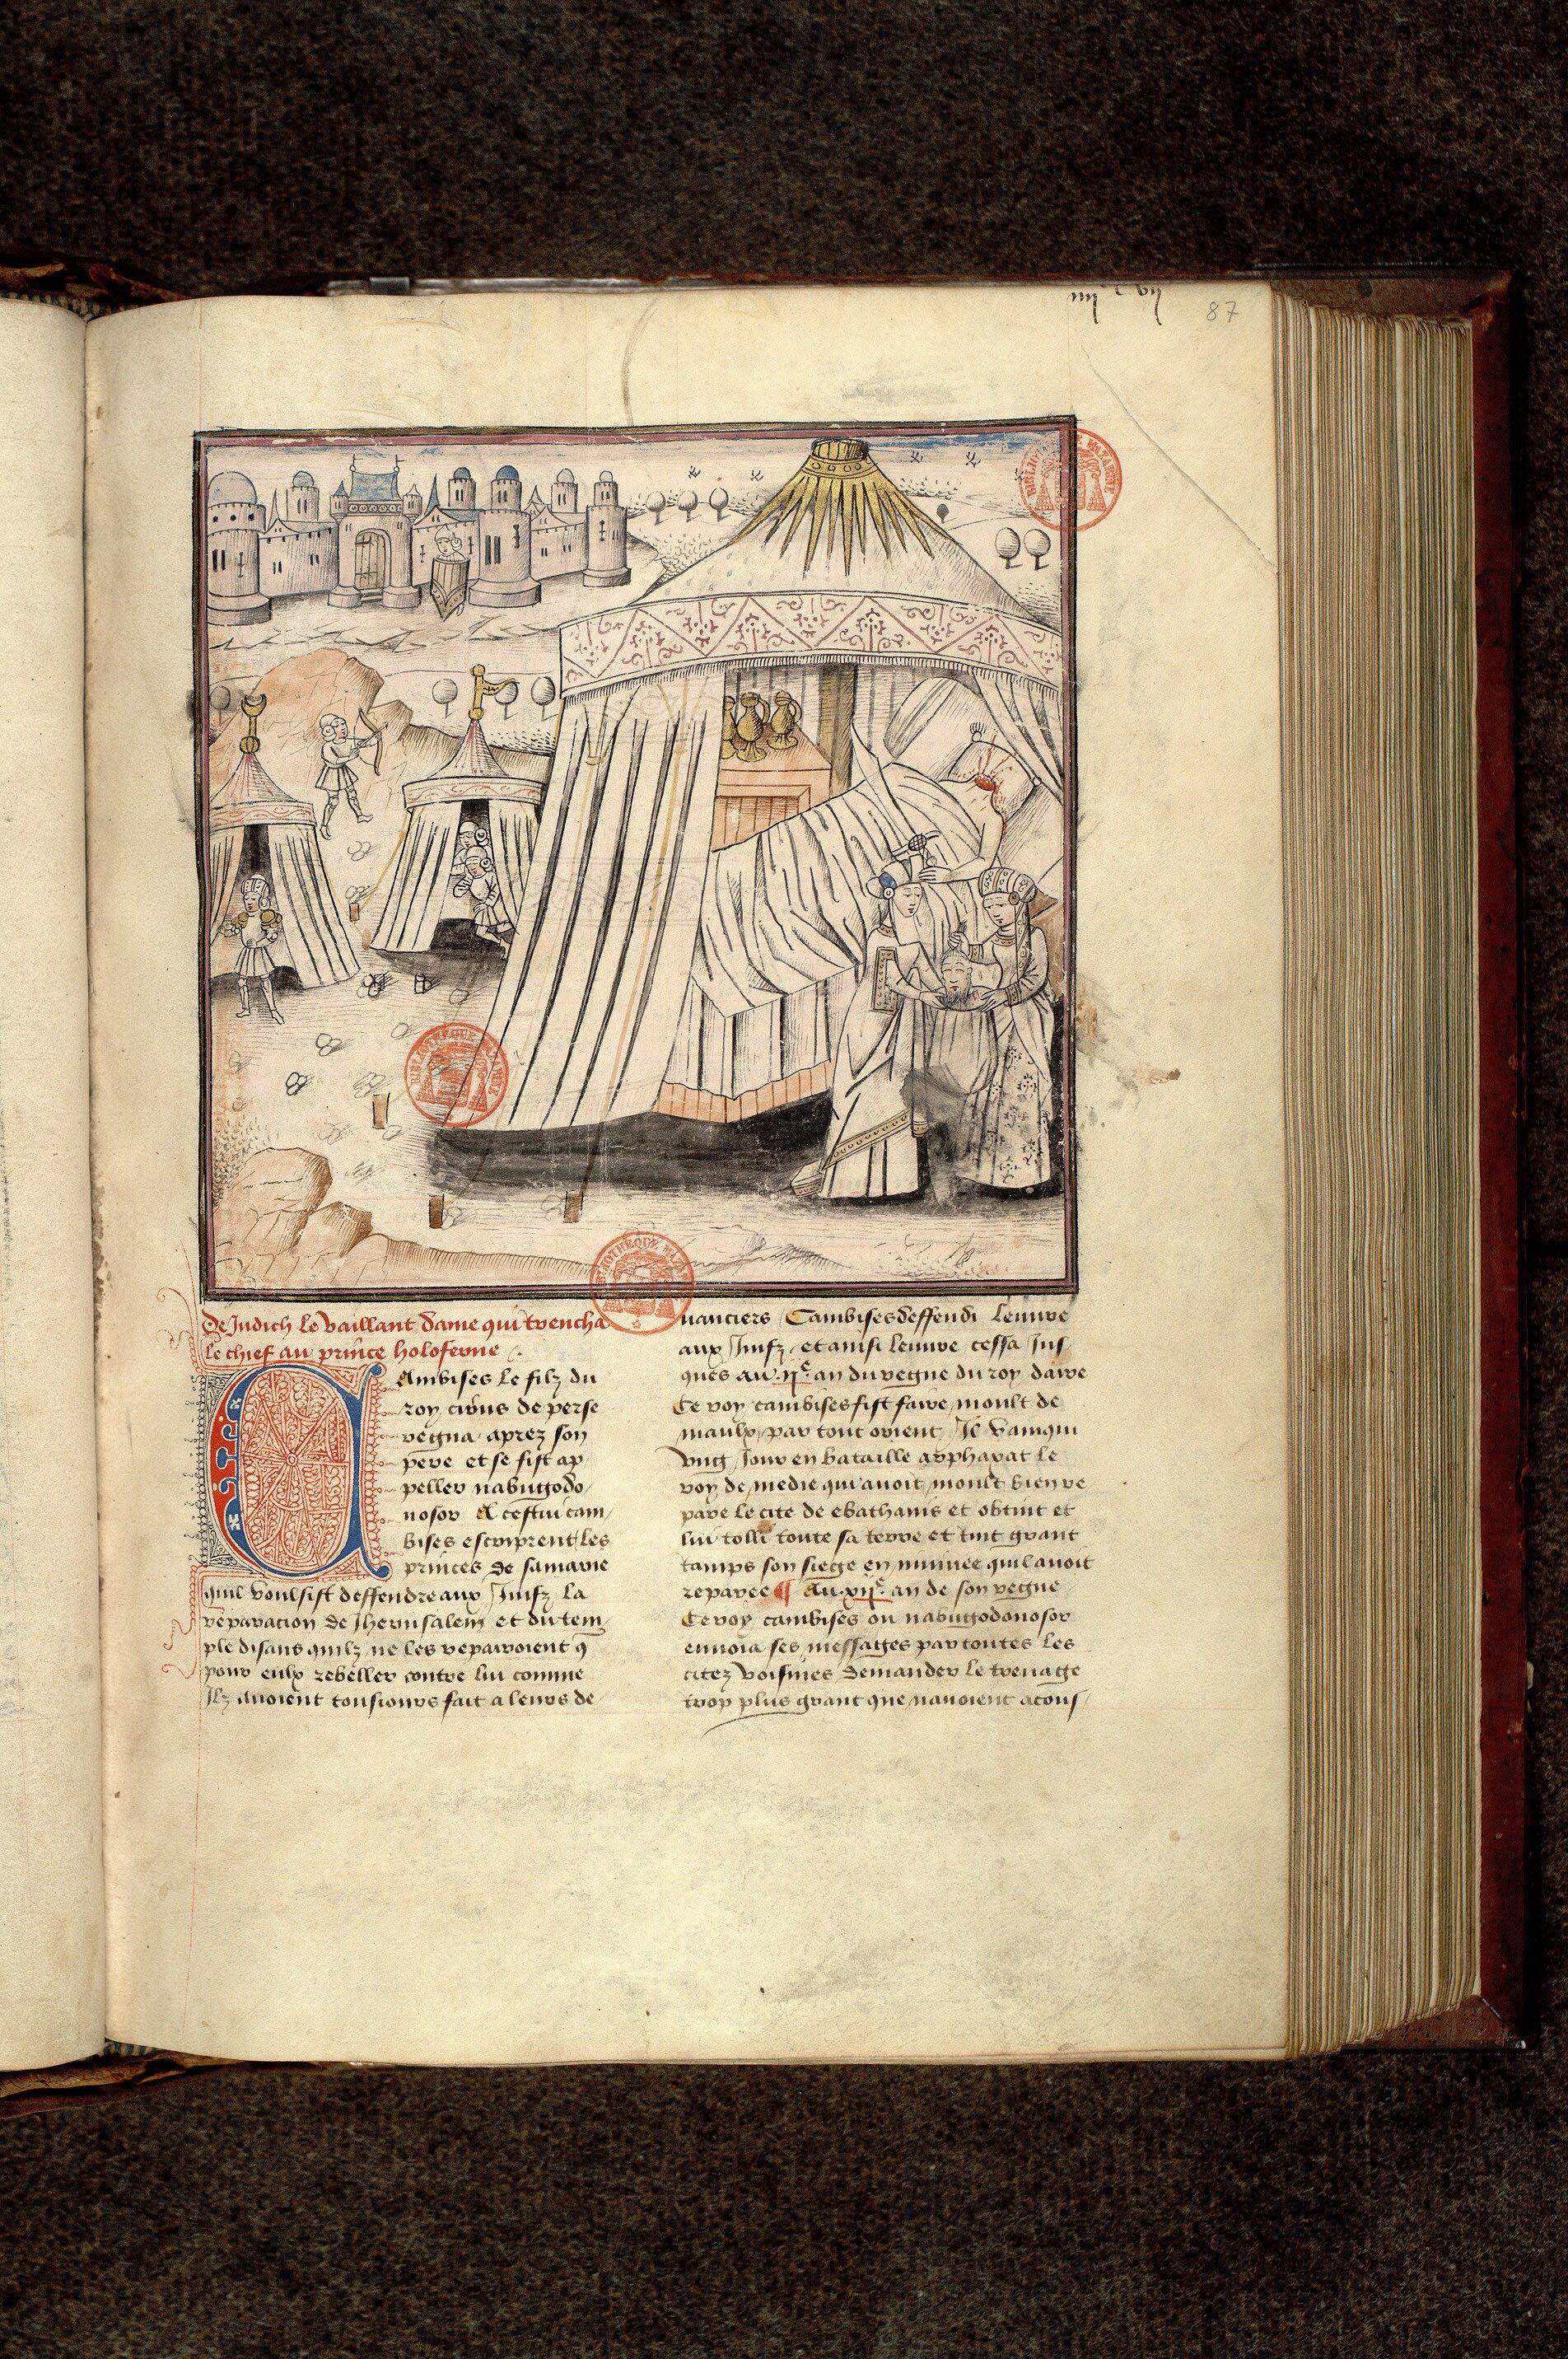 iiijxx vij
87
BIBLIOTHEQUE MAZARINE
BIBLIOTHEQUE MAZARINE
BIBLIOTHEQUE MAZARINE
De Judich le vaillant dame qui trencha
le chief au prince holoferne .
Cambises le filz du
roy cirus de perse
regna aprez son
pere et se fist ap
peller nabugodo
nosor A cestui cam
bises escriprent les
princes de samarie
quil voulsist deffendre aux Juifz la
reparacion de Jherusalem et du tem
ple disans quilz ne les reparoient q̄
pour eulx rebeller contre lui comme
Ilz auoient tousiours fait a leurs de
uanciers Cambises deffendi leuure
aux Juifz et ainsi leuure cessa Jus
ques au .ije. an du regne du roy daire
Ce roy cambises fist faire moult de
maulx par tout orient Il vainqui
vng Jour en bataille arphaxat le
roy de medie qui auoit moult bien re
pare le cite de ebathanis et obtint et
lui tolli toute sa terre et tint grant
tamps son siege en niniuee quil auoit
reparee ¶ Au .xije. an de son regne
Ce roy cambises ou nabugodonosor
enuoia ses messages par toutes les
citez voisines demander le treuage
trop plus grant que nauoient acous